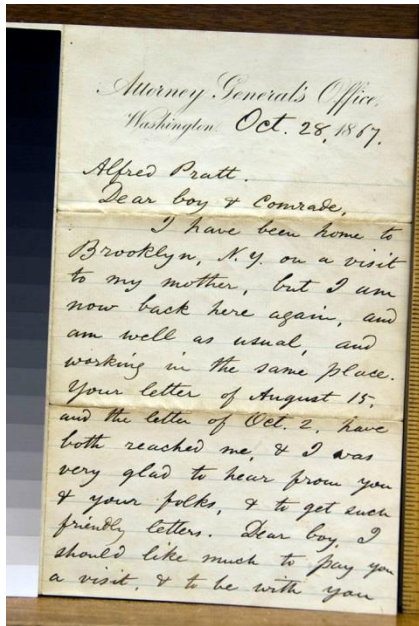 Attorney General's Office,
Washington Oct. 28, 1867.
Alfred Pratt.
Dear boy & Comrade,
I have been home to
Brooklyn, N.Y. on a visit
to my mother, but I am
now back here again, and
am well as usual, and
working in the same place.
Your letter of August 15,
and the letter of Oct. 2, have
both reached me, & I was
very glad to hear from you
& your folks, & to get such
friendly letters. Dear boy, I
should like much to pay you
a visit, & to be with you